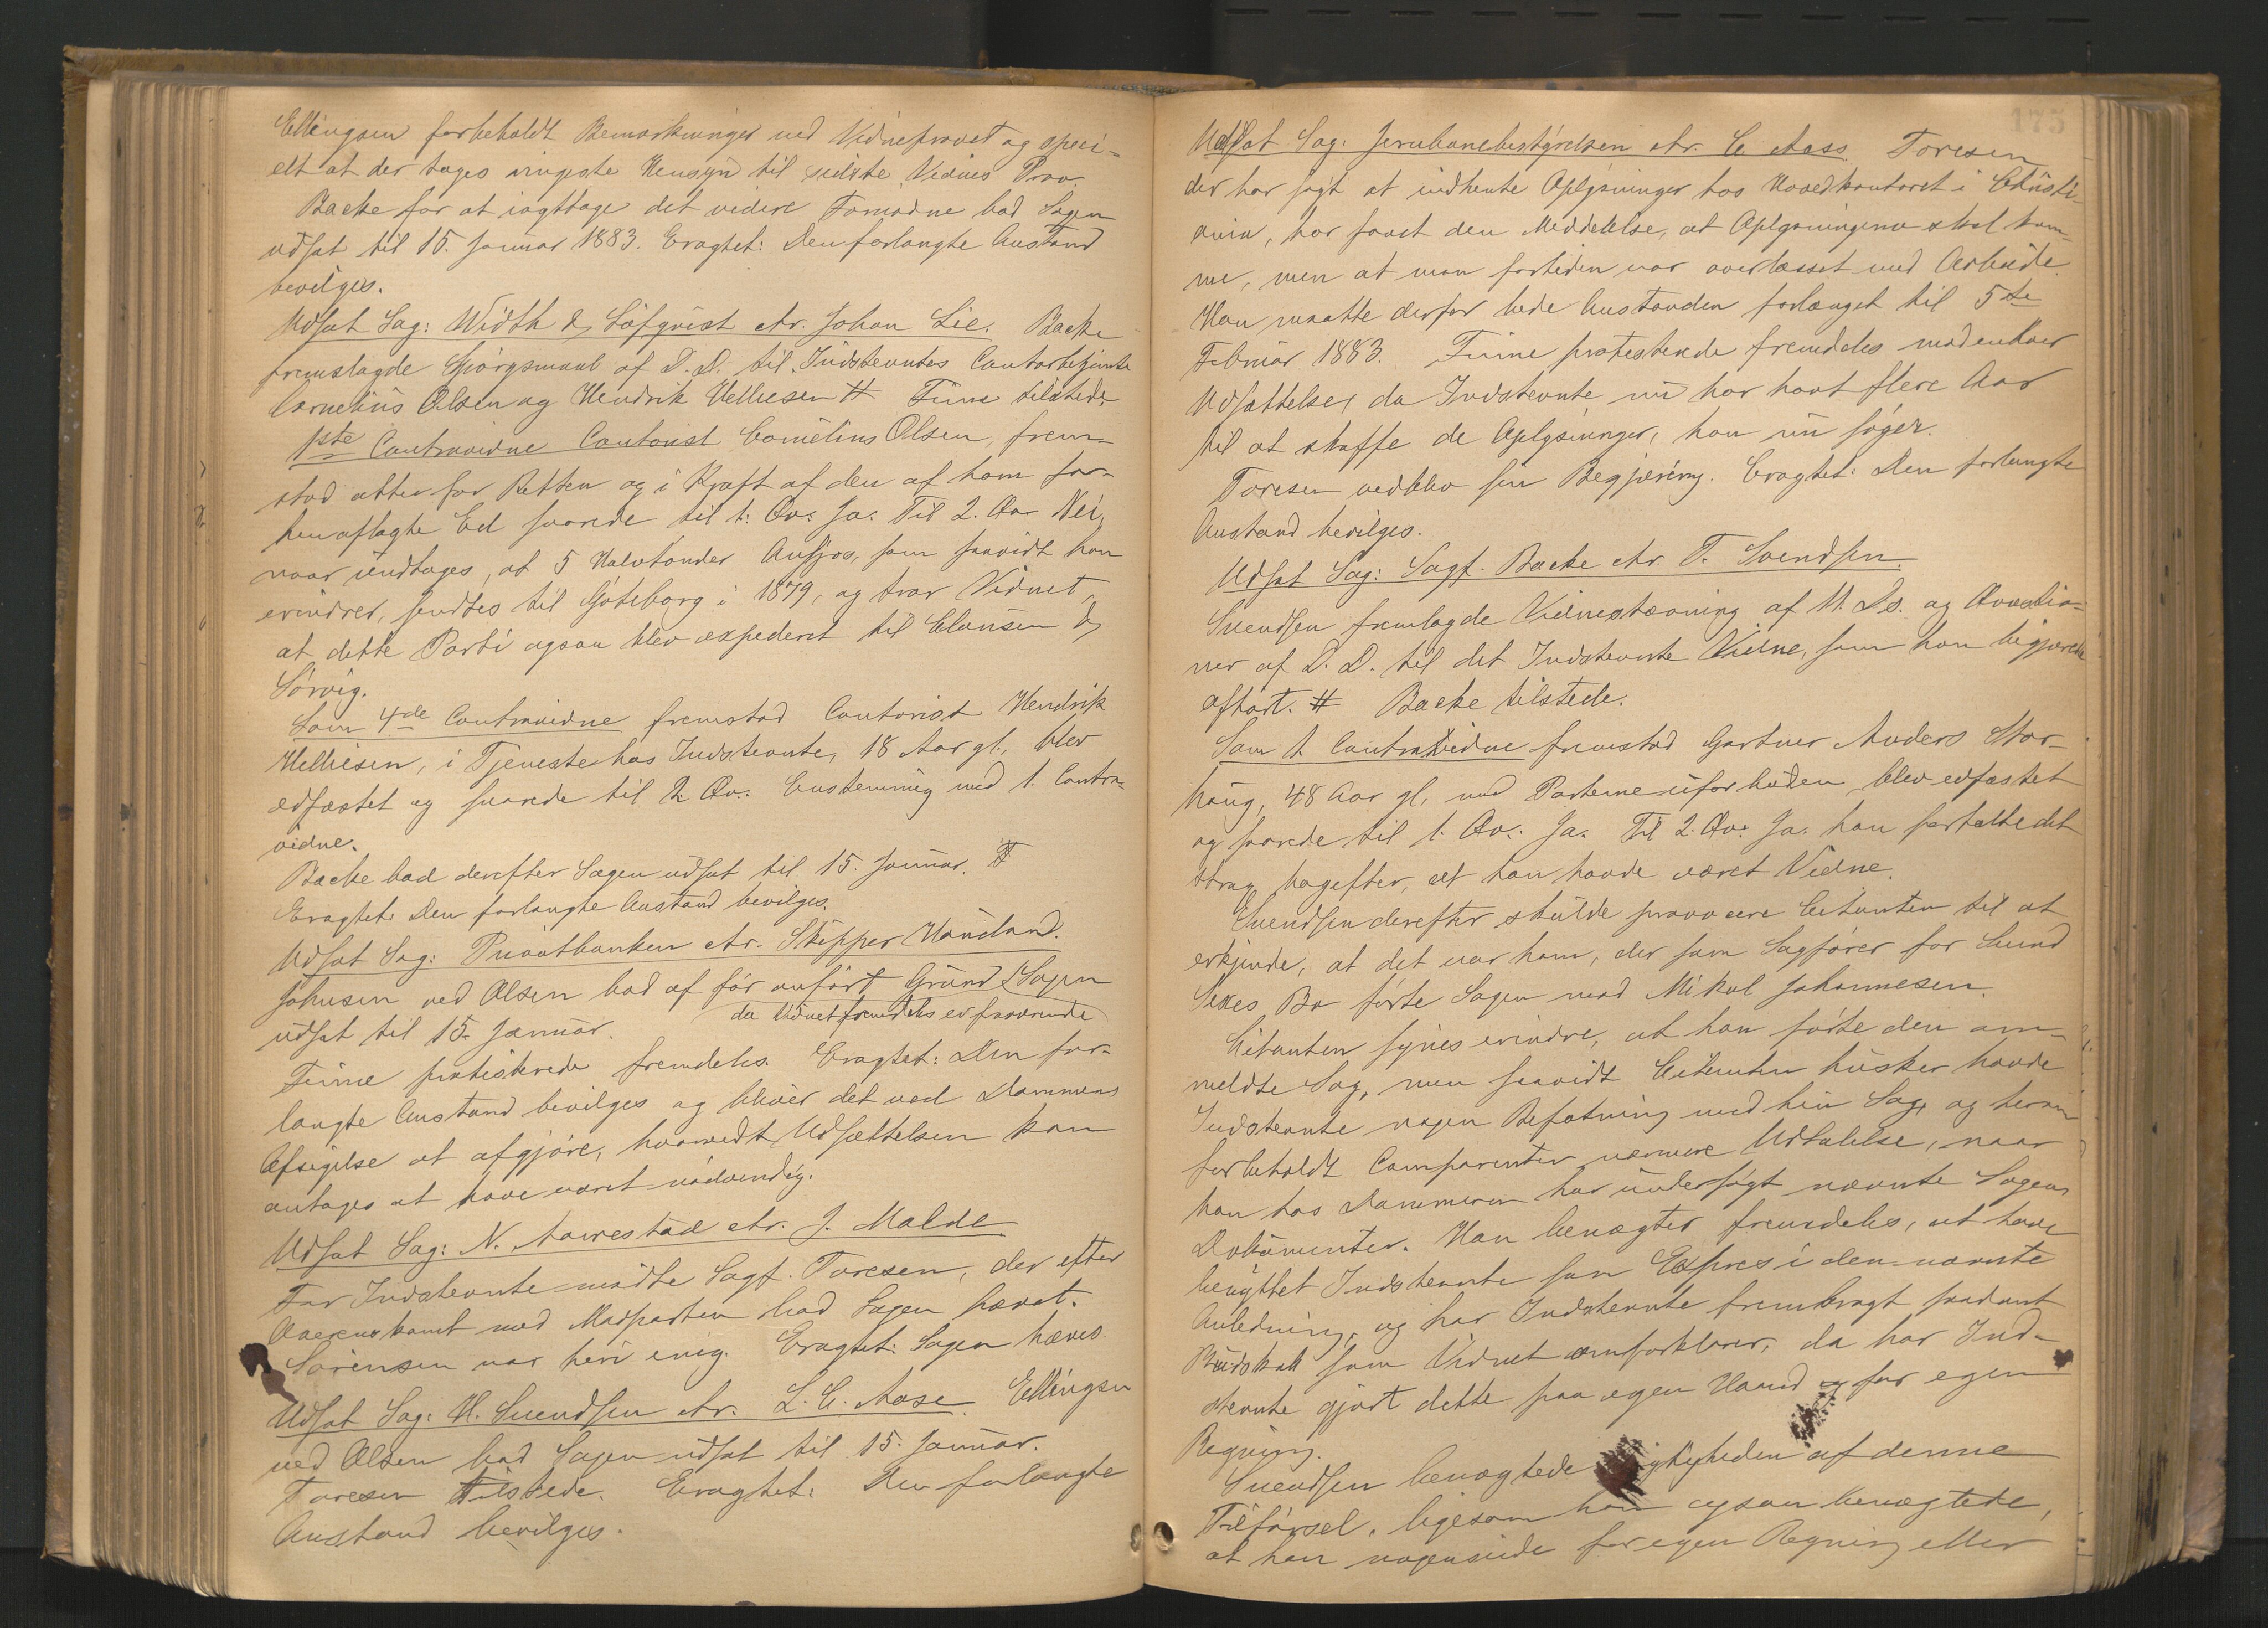 Ellingsen forbeholdt Bemærkninger ved Vidneprovet og speci-
elt at der tages ringeste Hensyn til sidste Vidnes Prov.
Backe for at iagttage det videre Fornødne bad Sagen
udsat til 15. Januar 1883. Eragtet: Den forlangte Anstand
bevilges.
Udsat Sag: Width & Löfqvist ctr. Johan Lie. Backe
fremlagde Spörgsmaal af D. D. til Indstevntes Contorbetjente
Cornelius Olsen og Hendrik Helliesen # Finne tilstede.
1ste Contravidne Contorist Cornelius Olsen, frem-
stod atter for Retten og i Kraft af den af ham for-
hen aflagte Ed svarede til 1. Qv: Ja. Til 2. Qv Nei,
naar undtages, at 5 Halvtönder Ansjos, som saavidt han
erindrer, sendtes til Göteborg i 1879, og tror Vidnet,
at dette Parti ogsaa blev expederet til Clausen &
Sörvig.
Som 4de Contravidne fremstod Contorist Hendrik
Helliesen, i Tjeneste hos Indstevnte, 18 Aar gl., blev
edfæstet og svarede til 2 Qv: Enstemmig med 1. Contra-
vidne.
Backe bad derefter Sagen udsat til 15. Januar. #
Eragtet: Den forlangte Anstand bevilges.
Udsat Sag: Privatbanken ctr. Skipper Hauland.
Johnsen ved Olsen bad af för anfört Grund Sagen
da Vidnet fremdeles er fraværende
udsat til 15. Januar.
Finne protesterede fremdeles. Eragtet: Den for-
langte Anstand bevilges og bliver det ved Dommens
Afsigelse at afgjöre, hvorvidt Udsættelsen kan
antages at have været nödvendig.
Udsat Sag: N. Aarrestad ctr. J. Malde
For Indstevnte mödte Sagf. Toresen, der efter
Overenskomst med Modparten bad Sagen hævet.
Sörensen var heri enig. Eragtet: Sagen hæves.
Udsat Sag: H. Svendsen ctr. L. C. Aase. Ellingsen
ved Olsen bad Sagen udsat til 15. Januar.
Toresen tilstede. Eragtet: Den forlangte
Anstand bevilges.
175
Udsat Sag: Jernbanebestyrelsen ctr. C. Aass. Toresen
der har sögt at indhente Oplysninger hos Hovedkontoret i Christi-
ania, har faaet den Meddelelse, at Oplysningerne skal kom-
me, men at man fortiden var overlæsset med Arbeide.
Han maatte derfor bede Anstanden forlænget til 5te
Februar 1883. Finne protesterede fremdeles mod enhver
Udsættelse, da Indstevnte nu har havt flere Aar
til at skaffe de Oplysninger, han nu söger.
Toresen vedblev sin Begjæring. Eragtet: Den forlangte
Anstand bevilges.
Udsat Sag: Sagf. Backe ctr. T. Svendsen.
Svendsen fremlagde Vidnestævning af 11. Ds. og Qvæstio-
ner af D. D. til det Indstevnte Vidne, som han begjærede
afhört. # Backe tilstede.
Som 1. Contravidne fremstod Gartner Anders Stor-
haug, 48 Aar gl., med Parterne uforbuden, blev edfæstet
og svarede til 1. Qv: Ja. Til 2. Qv: Ja. han fortalte det
strax bagefter, at han havde været Vidne.
Svendsen derefter skulde provocere Citanten til at
erkjende, at det var ham, der som Sagförer for Svend
Bo förte Sagen mod Mikal Johannesen.
Citanten synes erindre, at han förte den om-
meldte Sag, men saavidt Citanten husker havde
Indstevnte ingen Befatning med hin Sag, og herom
forbeholdt Comparenten nærmere Udtalelse, naar
han hos Dommeren har undersögt nævnte Sagens
Dokumenter. Han benægter fremdeles, at have
benyttet Indstevnte som Expres i den nævnte
Anledning, og har Indstevnte frembragt saadant
Budskab som Vidnet omforklarer, da har Ind-
stevnte gjort dette paa egen Haand og for egen
Regning.
Svendsen benægtede Rigtigheden af denne
Tilförsel, ligesom han ogsaa benægtede,
at han nogensinde for egen Regning eller